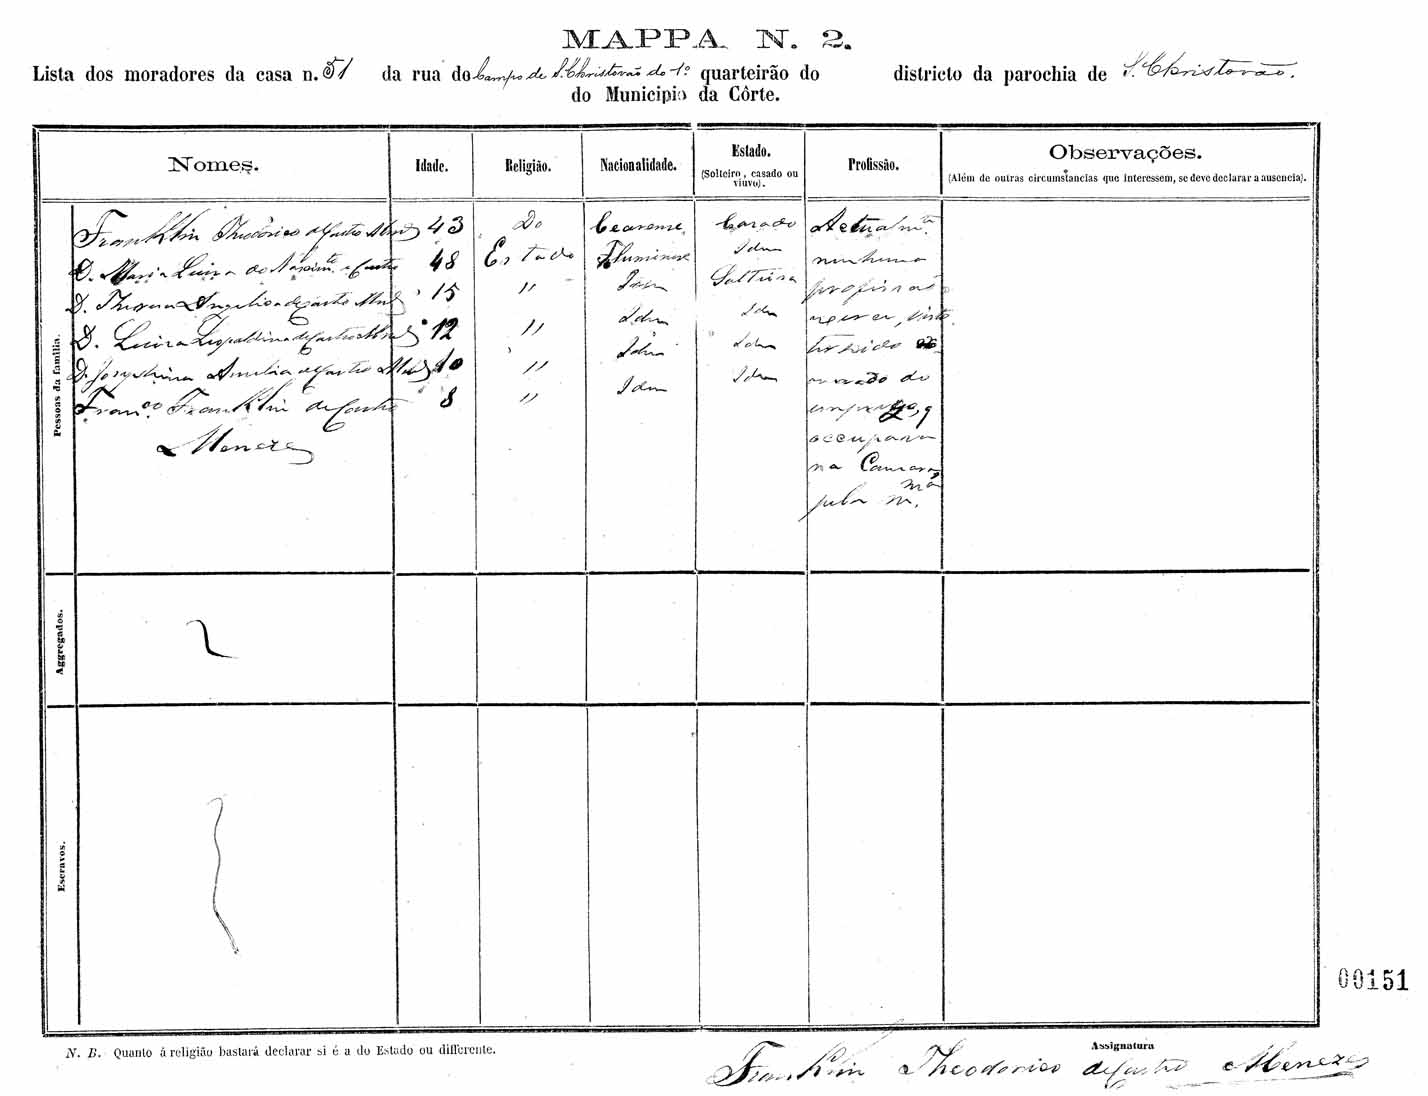 MAPPA N. 2.
Lista dos moradores da casa n. 51 da rua do Campo de S. Christovão do 1º quarteirão do districto da parochia de S. Christovão.
do Municipio da Côrte.
Nomes. Idade. Religião. Nacionalidade. Estado. (Solteiro, casado ou viuvo). Profissão. Observações. (Além de outras circumstancias que interessem, se deve declarar a ausencia).
Pessoas da familia.
Franklin Theodorico de Castro 43 Do Cearense Casado Actualmte
D. Maria Luiza do Nascimto e Castro 48 Estado Fluminense Idem nenhuma
D. Thereza Angelica de Castro 15 " Idem Solteira profissão
D. Luiza Leopoldina de Castro 12 " Idem Idem exerce, visto
D. Josephina Amelia de Castro 10 " Idem Idem ter sido
Franco Franklin de Castro 8 " Idem Idem do
Menezes emprego, q
occupava
na Camara
pela mma
m.
Aggregados.
Escravos.
00151
N. B. Quanto á religião bastará declarar si é a do Estado ou differente.
Assignatura
Franklin Theodorico de Castro Menezes